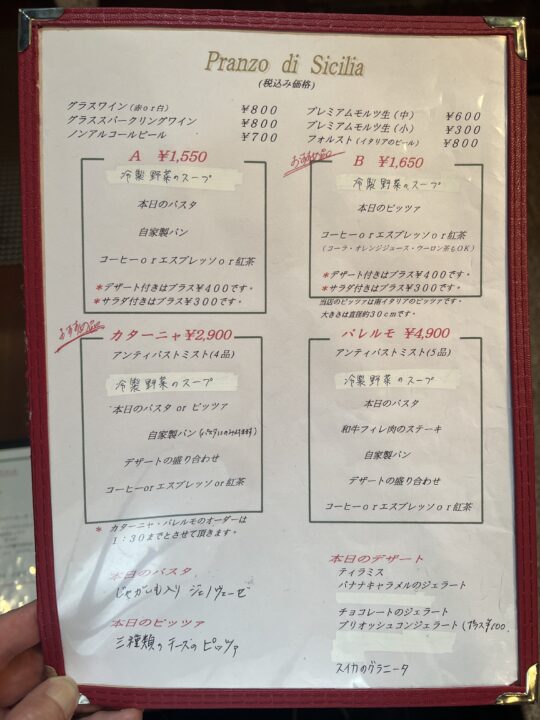 Pranzo di Sicilia
(税込み価格)
グラスワイン(赤or白) ¥800
グラススパークリングワイン ¥800
ノンアルコールビール ¥700
プレミアムモルツ生(中) ¥600
プレミアムモルツ生(小) ¥300
フォルスト(イタリアのビール) ¥800
A ¥1,550
冷製野菜のスープ
本日のパスタ
自家製パン
コーヒーorエスプレッソor紅茶
*デザート付きはプラス¥400です。
*サラダ付きはプラス¥300です。
おすすめ品
B ¥1,650
冷製野菜のスープ
本日のピッツァ
コーヒーorエスプレッソor紅茶
(コーラ・オレンジジュース・ウーロン茶もOK)
*デザート付きはプラス¥400です。
*サラダ付きはプラス¥300です。
当店のピッツァは南イタリアのピッツァです。
大きさは直径約30cmです。
おすすめ品
カターニャ ¥2,900
アンティパストミスト(4品)
冷製野菜のスープ
本日のパスタ or ピッツァ
自家製パン
デザートの盛り合わせ
コーヒーorエスプレッソor紅茶
* カターニャ・パレルモのオーダーは
1:30までとさせて頂きます。
パレルモ ¥4,900
アンティパストミスト(5品)
冷製野菜のスープ
本日のパスタ
和牛フィレ肉のステーキ
自家製パン
デザートの盛り合わせ
コーヒーorエスプレッソor紅茶
本日のパスタ
じゃがいも入り ジェノヴェーゼ
本日のピッツァ
三種類のチーズのピッツァ
本日のデザート
ティラミス
バナナキャラメルのジェラート
チョコレートのジェラート
ブリオッシュコンジェラート(プラス¥100
スイカのグラニータ